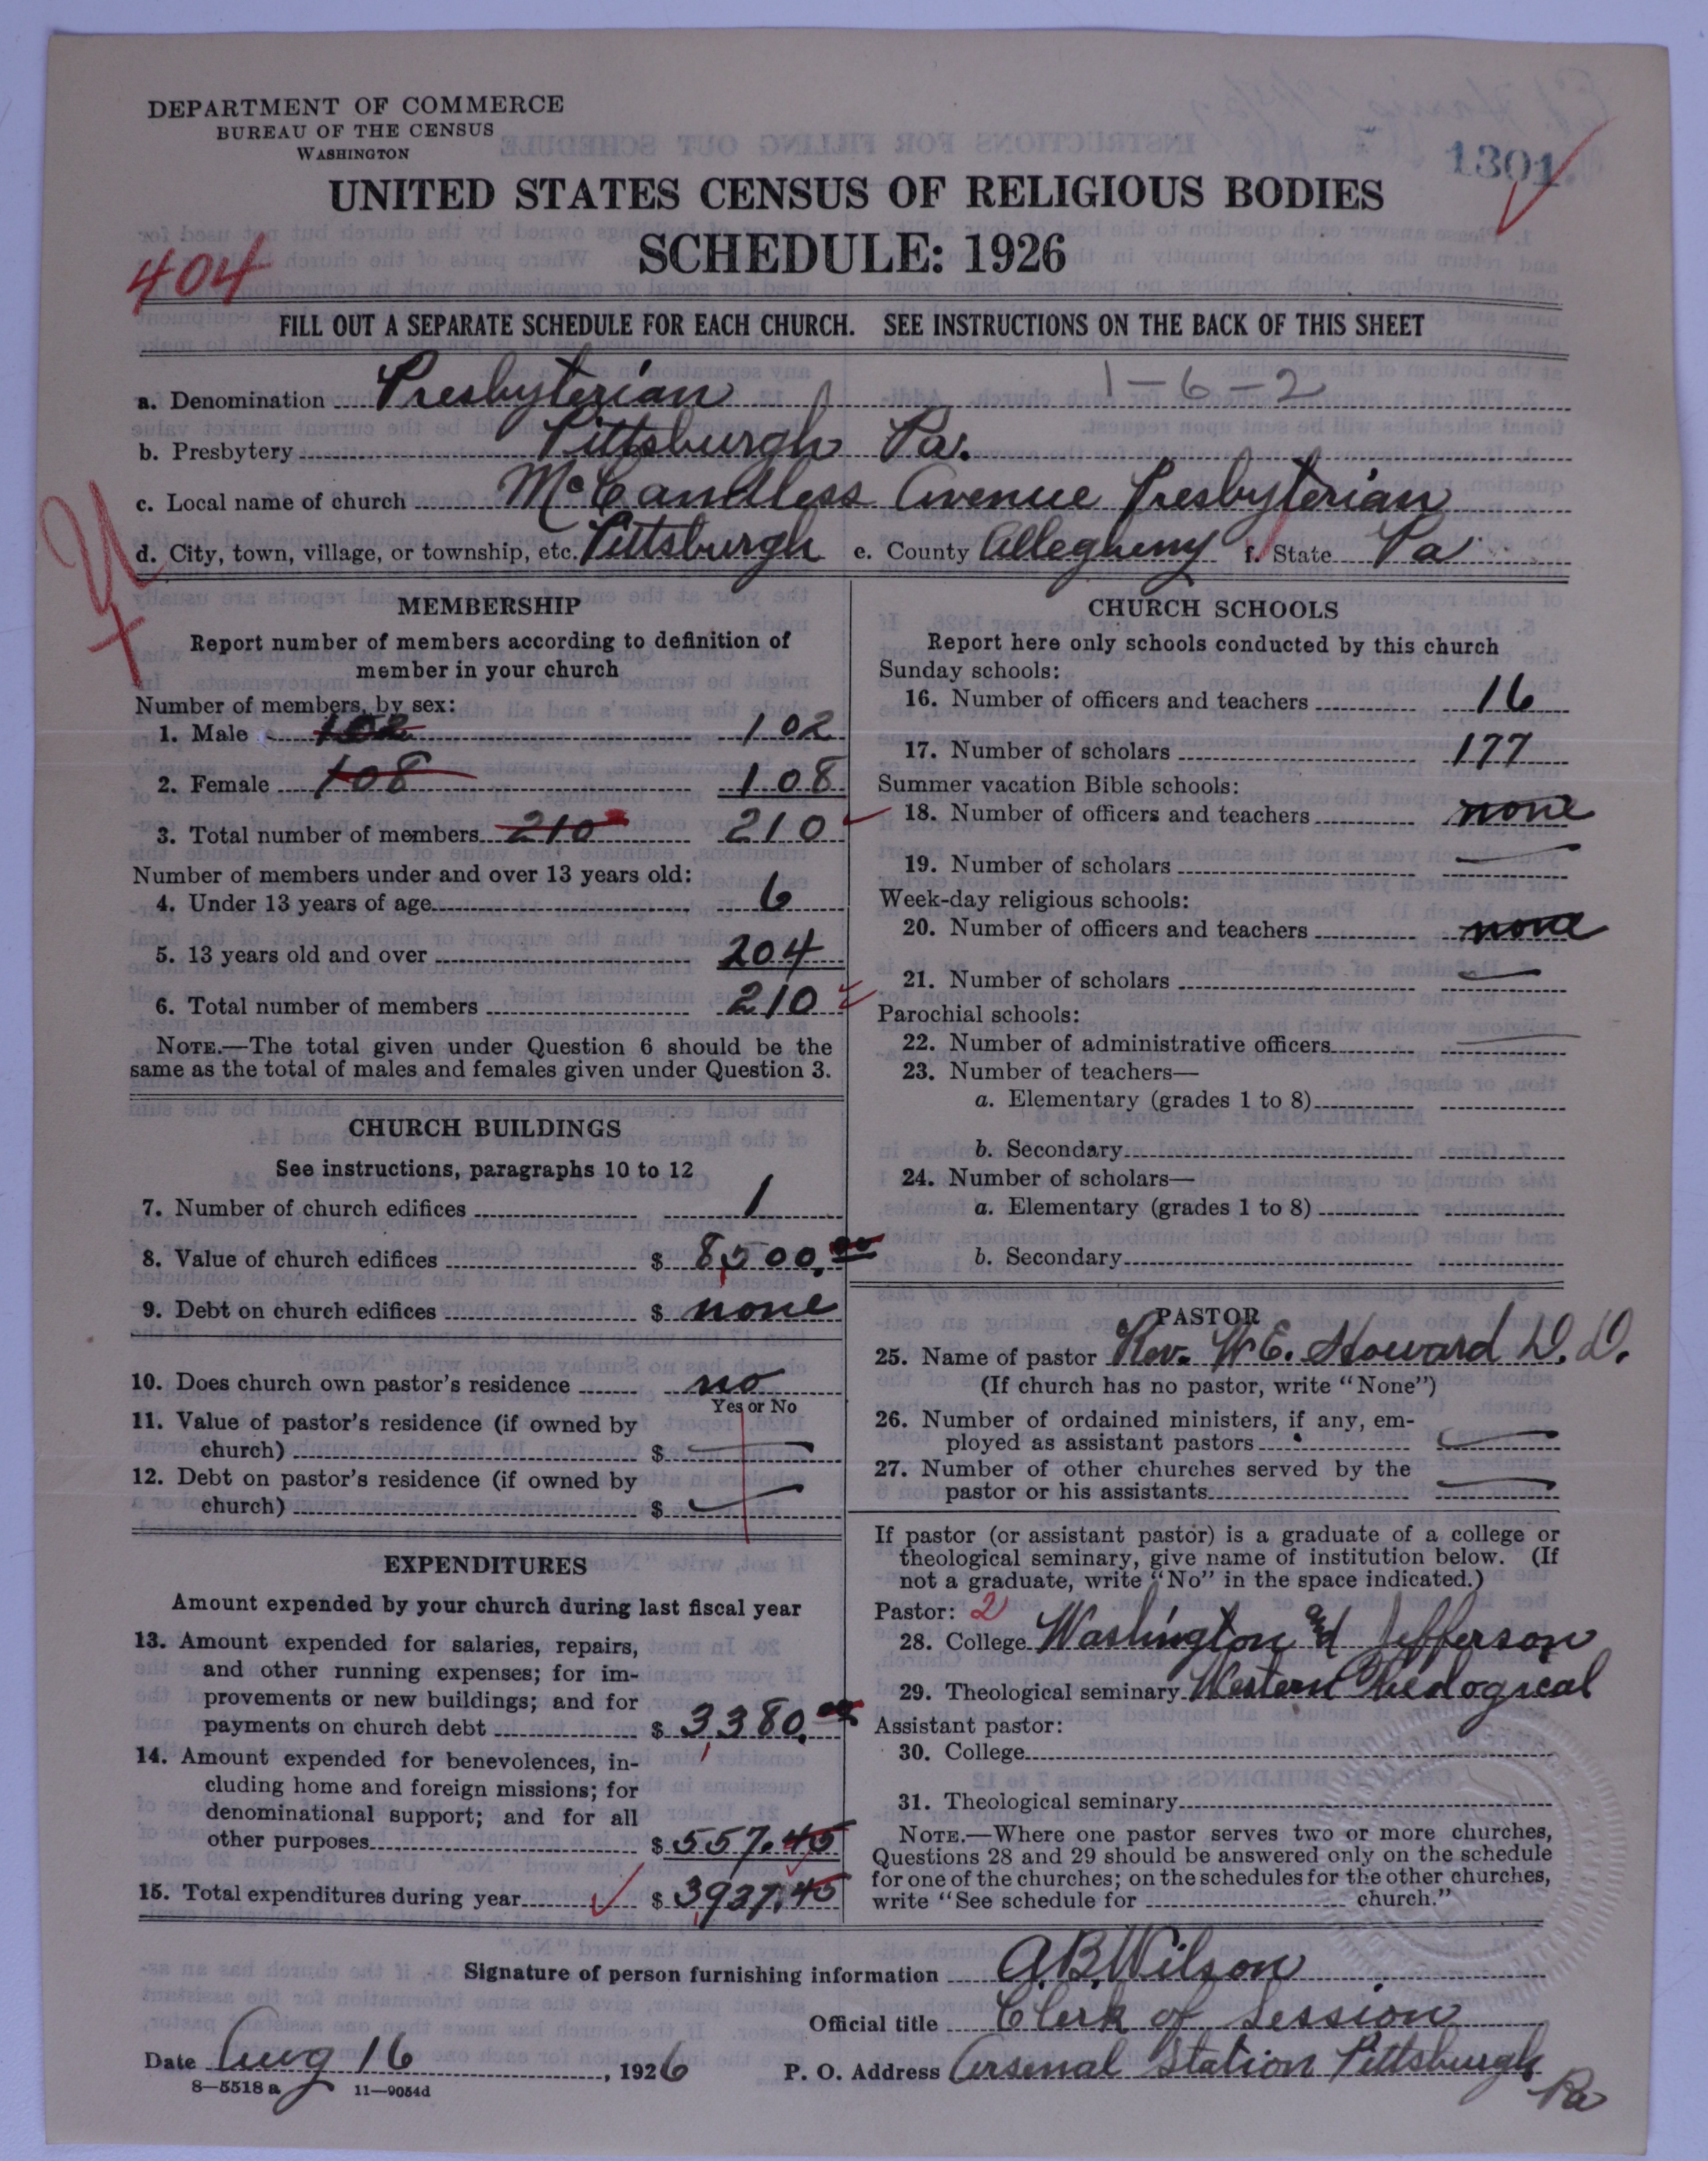 DEPARTMENT OF COMMERCE
BUREAU OF THE CENSUS
WASHINGTON
1301
UNITED STATES CENSUS OF RELIGIOUS BODIES
SCHEDULE: 1926
404
FILL OUT A SEPARATE SCHEDULE FOR EACH CHURCH. SEE INSTRUCTIONS ON THE BACK OF THIS SHEET
a. Denomination Presbyterian 1-6-2
b. Presbytery Pittsburgh Pa.
c. Local name of church McCandless Avenue Presbyterian
d. City, town, village, or township, etc. Pittsburgh e. County Allegheny f. State Pa
MEMBERSHIP
Report number of members according to definition of
member in your church
Number of members, by sex:
1. Male 102 102
2. Female 108 108
3. Total number of members 210 210
Number of members under and over 13 years old:
4. Under 13 years of age 6
5. 13 years old and over 204
6. Total number of members 210
NOTE.—The total given under Question 6 should be the
same as the total of males and females given under Question 3.
CHURCH BUILDINGS
See instructions, paragraphs 10 to 12
7. Number of church edifices 1
8. Value of church edifices $ 8,500.00
9. Debt on church edifices $ none
10. Does church own pastor's residence no
Yes or No
11. Value of pastor's residence (if owned by
church) $ —
12. Debt on pastor's residence (if owned by
church) $ —
EXPENDITURES
Amount expended by your church during last fiscal year
13. Amount expended for salaries, repairs,
and other running expenses; for im-
provements or new buildings; and for
payments on church debt $ 3,380.00
14. Amount expended for benevolences, in-
cluding home and foreign missions; for
denominational support; and for all
other purposes $ 557.45
15. Total expenditures during year $ 3,937.45
CHURCH SCHOOLS
Report here only schools conducted by this church
Sunday schools:
16. Number of officers and teachers 16
17. Number of scholars 177
Summer vacation Bible schools:
18. Number of officers and teachers none
19. Number of scholars —
Week-day religious schools:
20. Number of officers and teachers none
21. Number of scholars —
Parochial schools:
22. Number of administrative officers —
23. Number of teachers—
a. Elementary (grades 1 to 8)
b. Secondary
24. Number of scholars—
a. Elementary (grades 1 to 8)
b. Secondary
PASTOR
25. Name of pastor Rev. W E. Howard D. D.
(If church has no pastor, write "None")
26. Number of ordained ministers, if any, em-
ployed as assistant pastors —
27. Number of other churches served by the
pastor or his assistants —
If pastor (or assistant pastor) is a graduate of a college or
theological seminary, give name of institution below. (If
not a graduate, write "No" in the space indicated.)
Pastor: 2
28. College Washington and Jefferson
29. Theological seminary Western Theological
Assistant pastor:
30. College
31. Theological seminary
NOTE.—Where one pastor serves two or more churches,
Questions 28 and 29 should be answered only on the schedule
for one of the churches; on the schedules for the other churches,
write "See schedule for church."
Signature of person furnishing information A.B. Wilson
Official title Clerk of Session
Date Aug 16, 1926 P. O. Address Arsenal Station Pittsburgh
Pa
8—5518 a 11—9054d